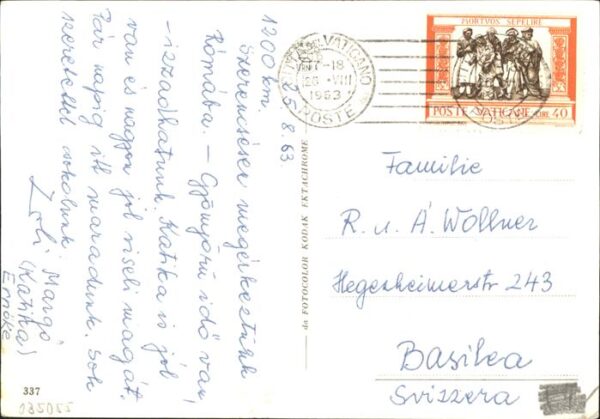 1200 km.
25.8.63
Szerencsésen megérkeztünk
Rómába. – Gyönyörű idő van,
– izzadhatunk. Katika is jól
van és nagyon jól viseli magát.
Pár napig itt maradunk. Sok
szeretettel csókolunk:
Zoli, Margó
(Katika)
Emőke
337
135055
da FOTOCOLOR KODAK EKTACHROME
VATICANO
17-18
26 VIII
1963
POSTE
MORTVOS SEPELIRE
POSTE VATICANE LIRE 40
Familie
R. u. Á. Wollner
Hegenheimerstr 243
Basilea
Svizzera